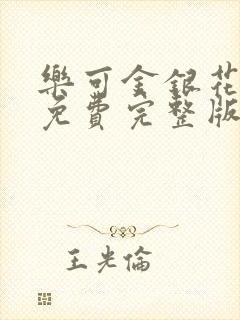 樂可金銀花
免費完整版
王光倫